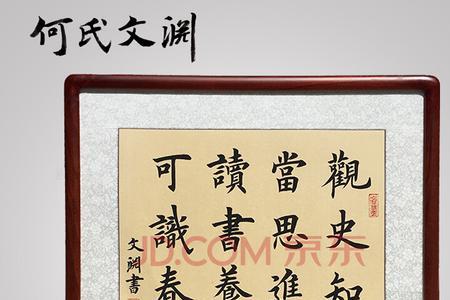 何氏文渊
觀史知
當思進
讀書養
可識春
文渊書
JD.COM 京东